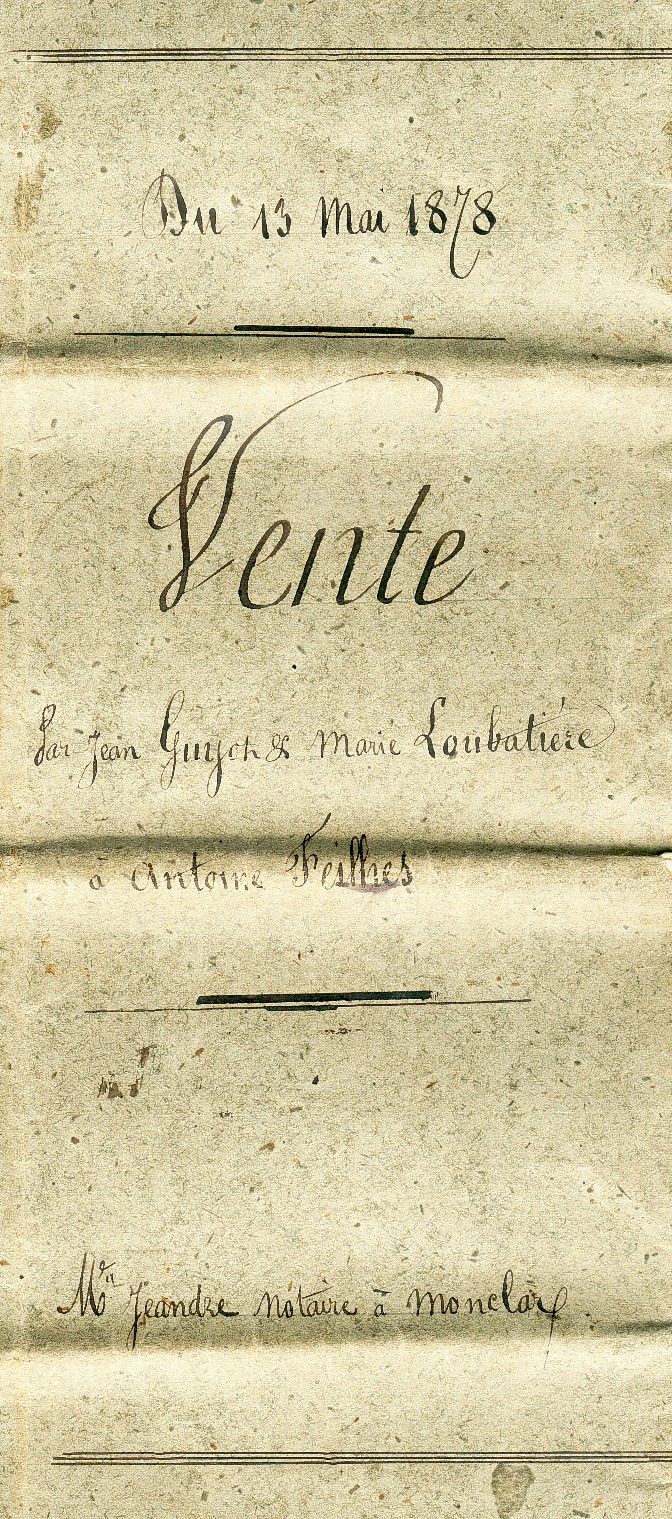 Du 13 Mai 1878
Vente
Par Jean Guyoh & Marie Loubatière
à Antoine Feilhes
Mᵉ Jeandre notaire à Monclar